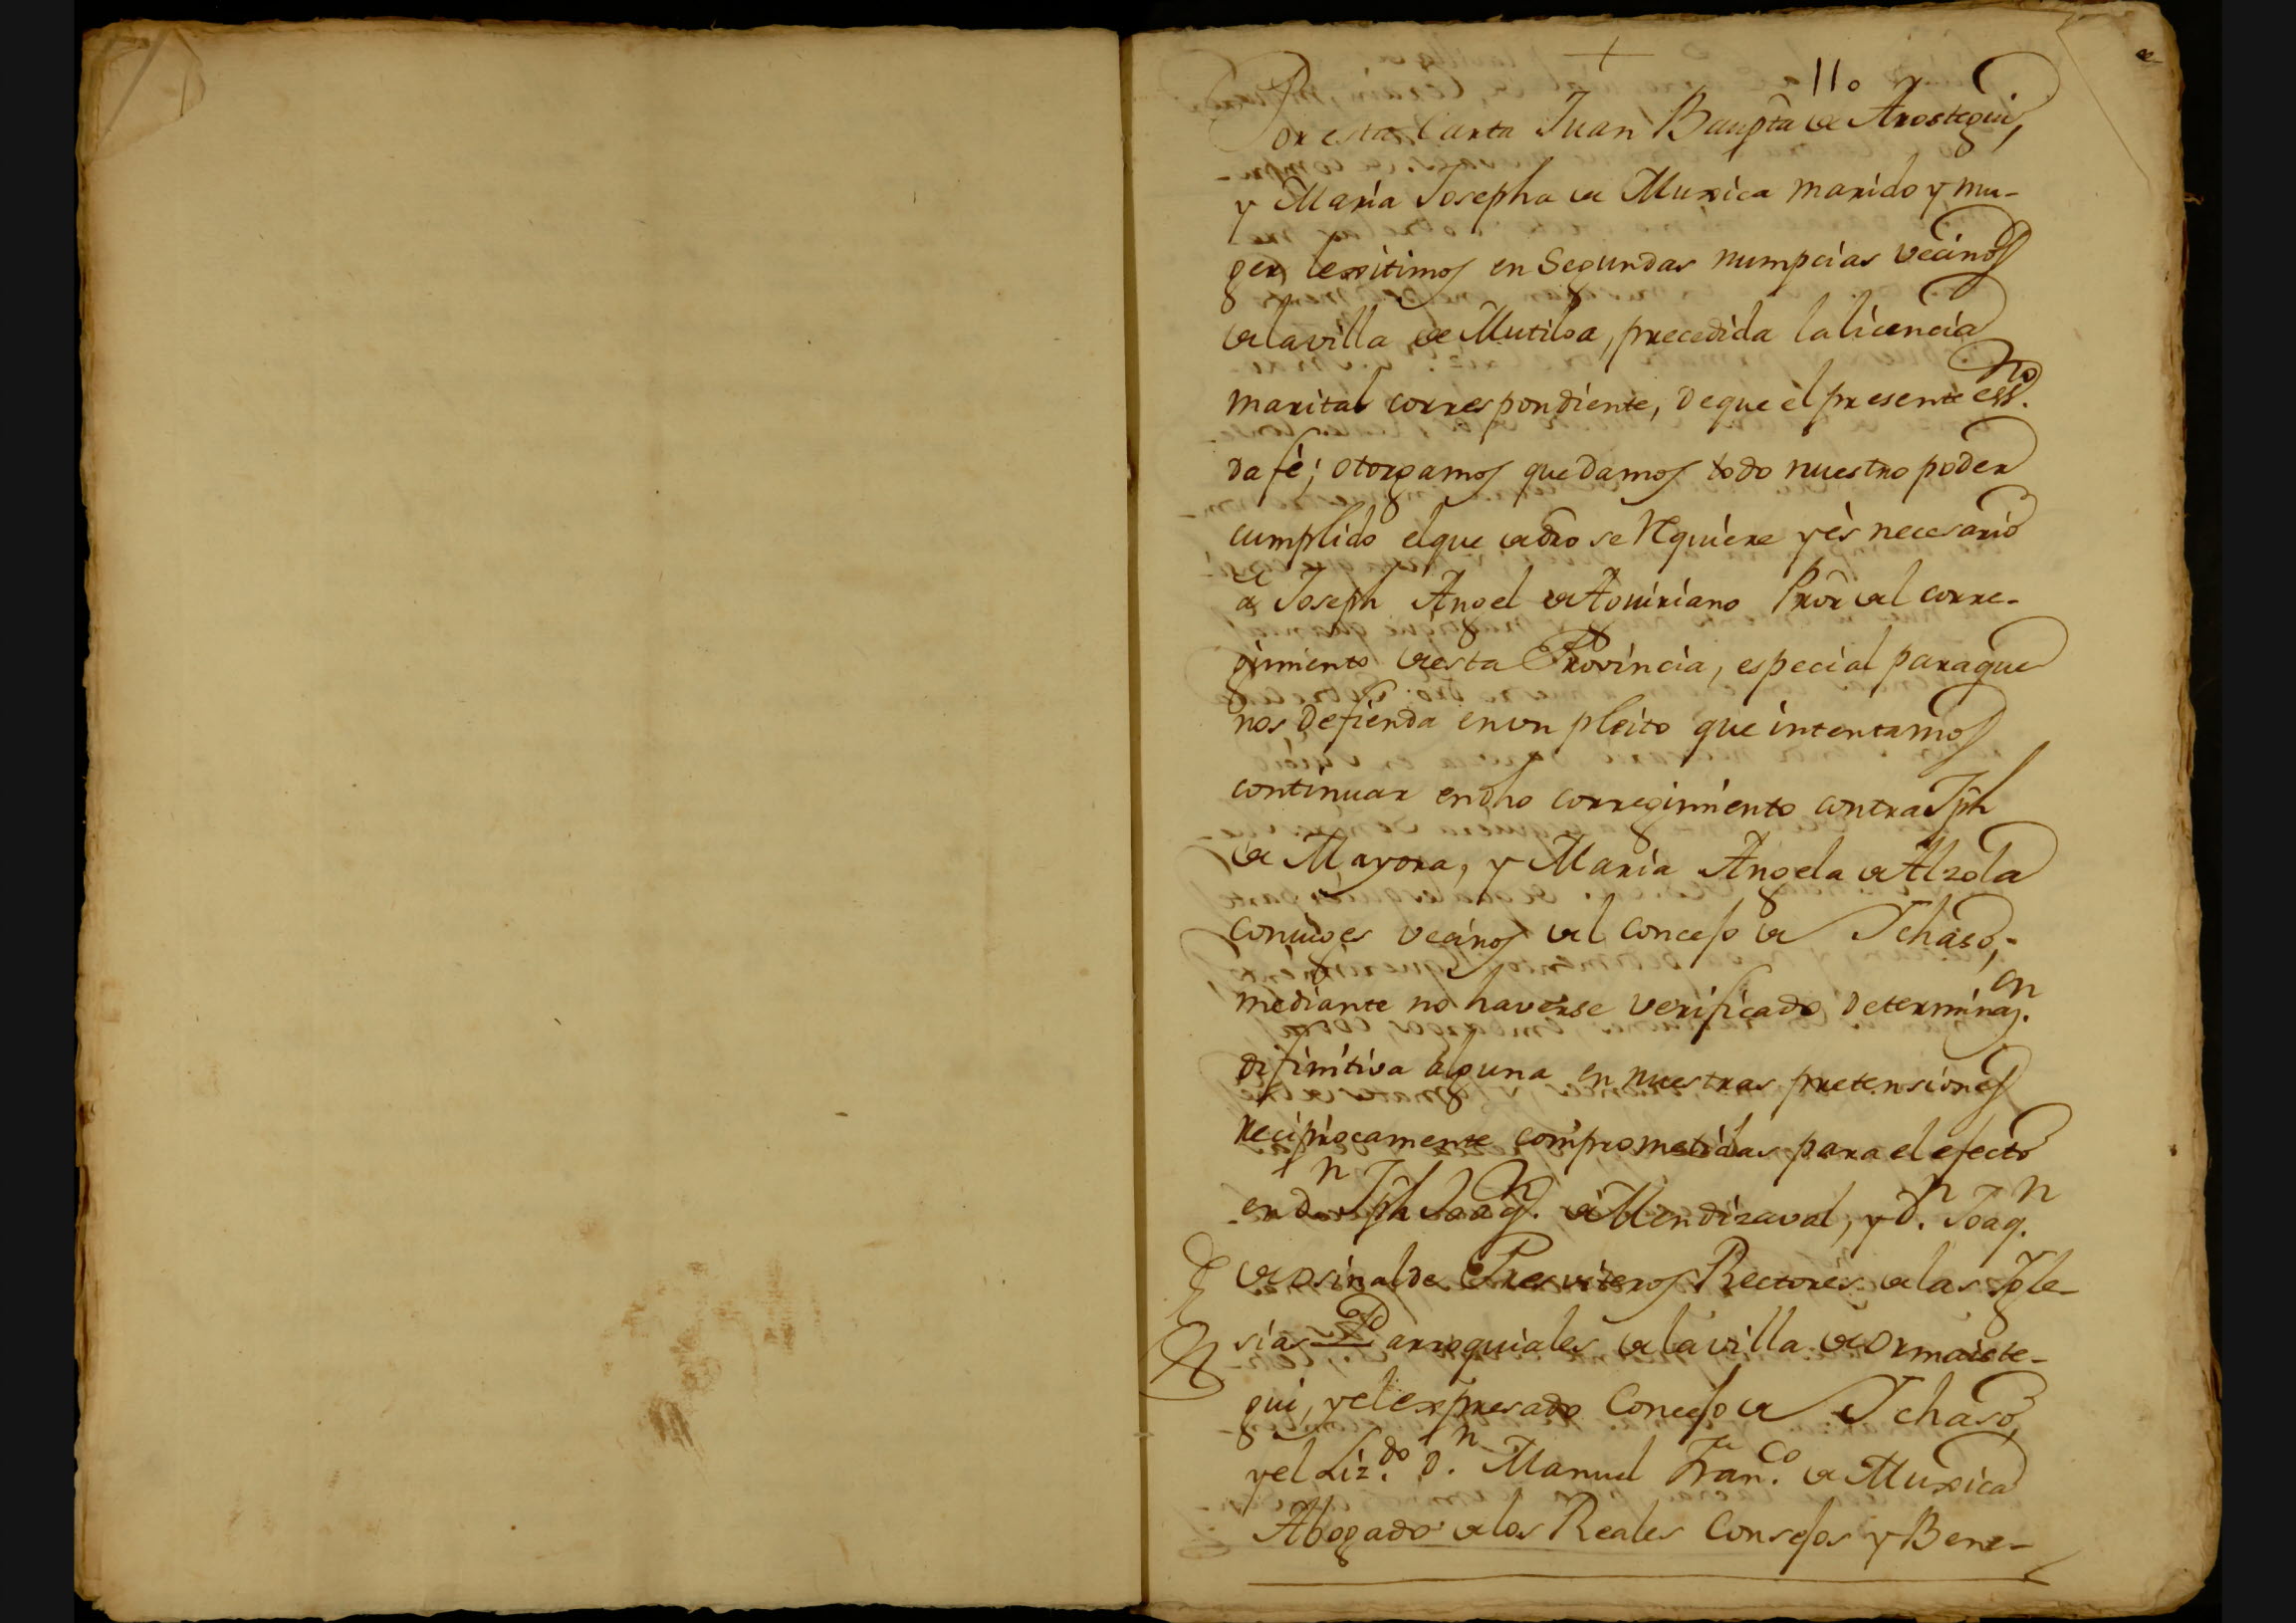 110
Por esta Carta Juan Baupta de Arostegui,
y Maria Josepha de Muxica marido y mu-
ger lexitimos en Segundas numpcias vecinos
de la villa de Mutiloa, precedida la licencia
marital correspondiente, de que èl presente essno.
da fè; otorgamos que damos todo nuestro poder
cumplido el que de dro se requiere y ès necesario
à Joseph Angel de Aguiriano Pror del corre-
gimiento de esta Provincia, especial para que
nos defienda en un pleito que intentamos
continuar en dho corregimiento contra Jph
de Mayora, y Maria Angela de Alzola
conuiges vecinos del concejo de Ichaso,-
mediante no haverse verificado determinaçen.
difinitiva alguna en nuestras pretensiones
reciprocamente comprometidas para el efecto
en Dn Jph Joaqn. de Mendizaval, y Dn. Joaqn.
de Osinalde Presviteros Rectores de las Igle-
sias Parroquiales de la villa de Ormaiste-
gui, y el expresado Concejo de Ichaso,
y el Lizdo. Dn. Manuel Franco. de Muxica
Abogado de los Reales Consejos y Bene-